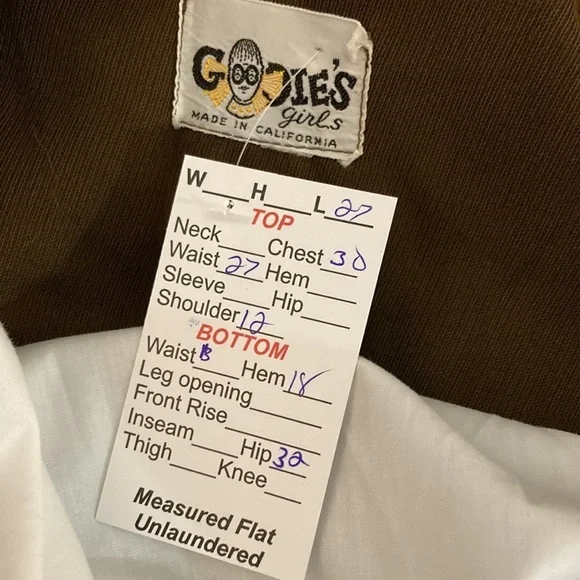 GOODIE'S
girls
MADE IN CALIFORNIA
W___ H___ L 27
TOP
Neck___ Chest 30
Waist 27 Hem___
Sleeve___ Hip___
Shoulder 12
BOTTOM
Waist Hem 18
Leg opening___
Front Rise___
Inseam___ Hip 32
Thigh___ Knee___
Measured Flat
Unlaundered